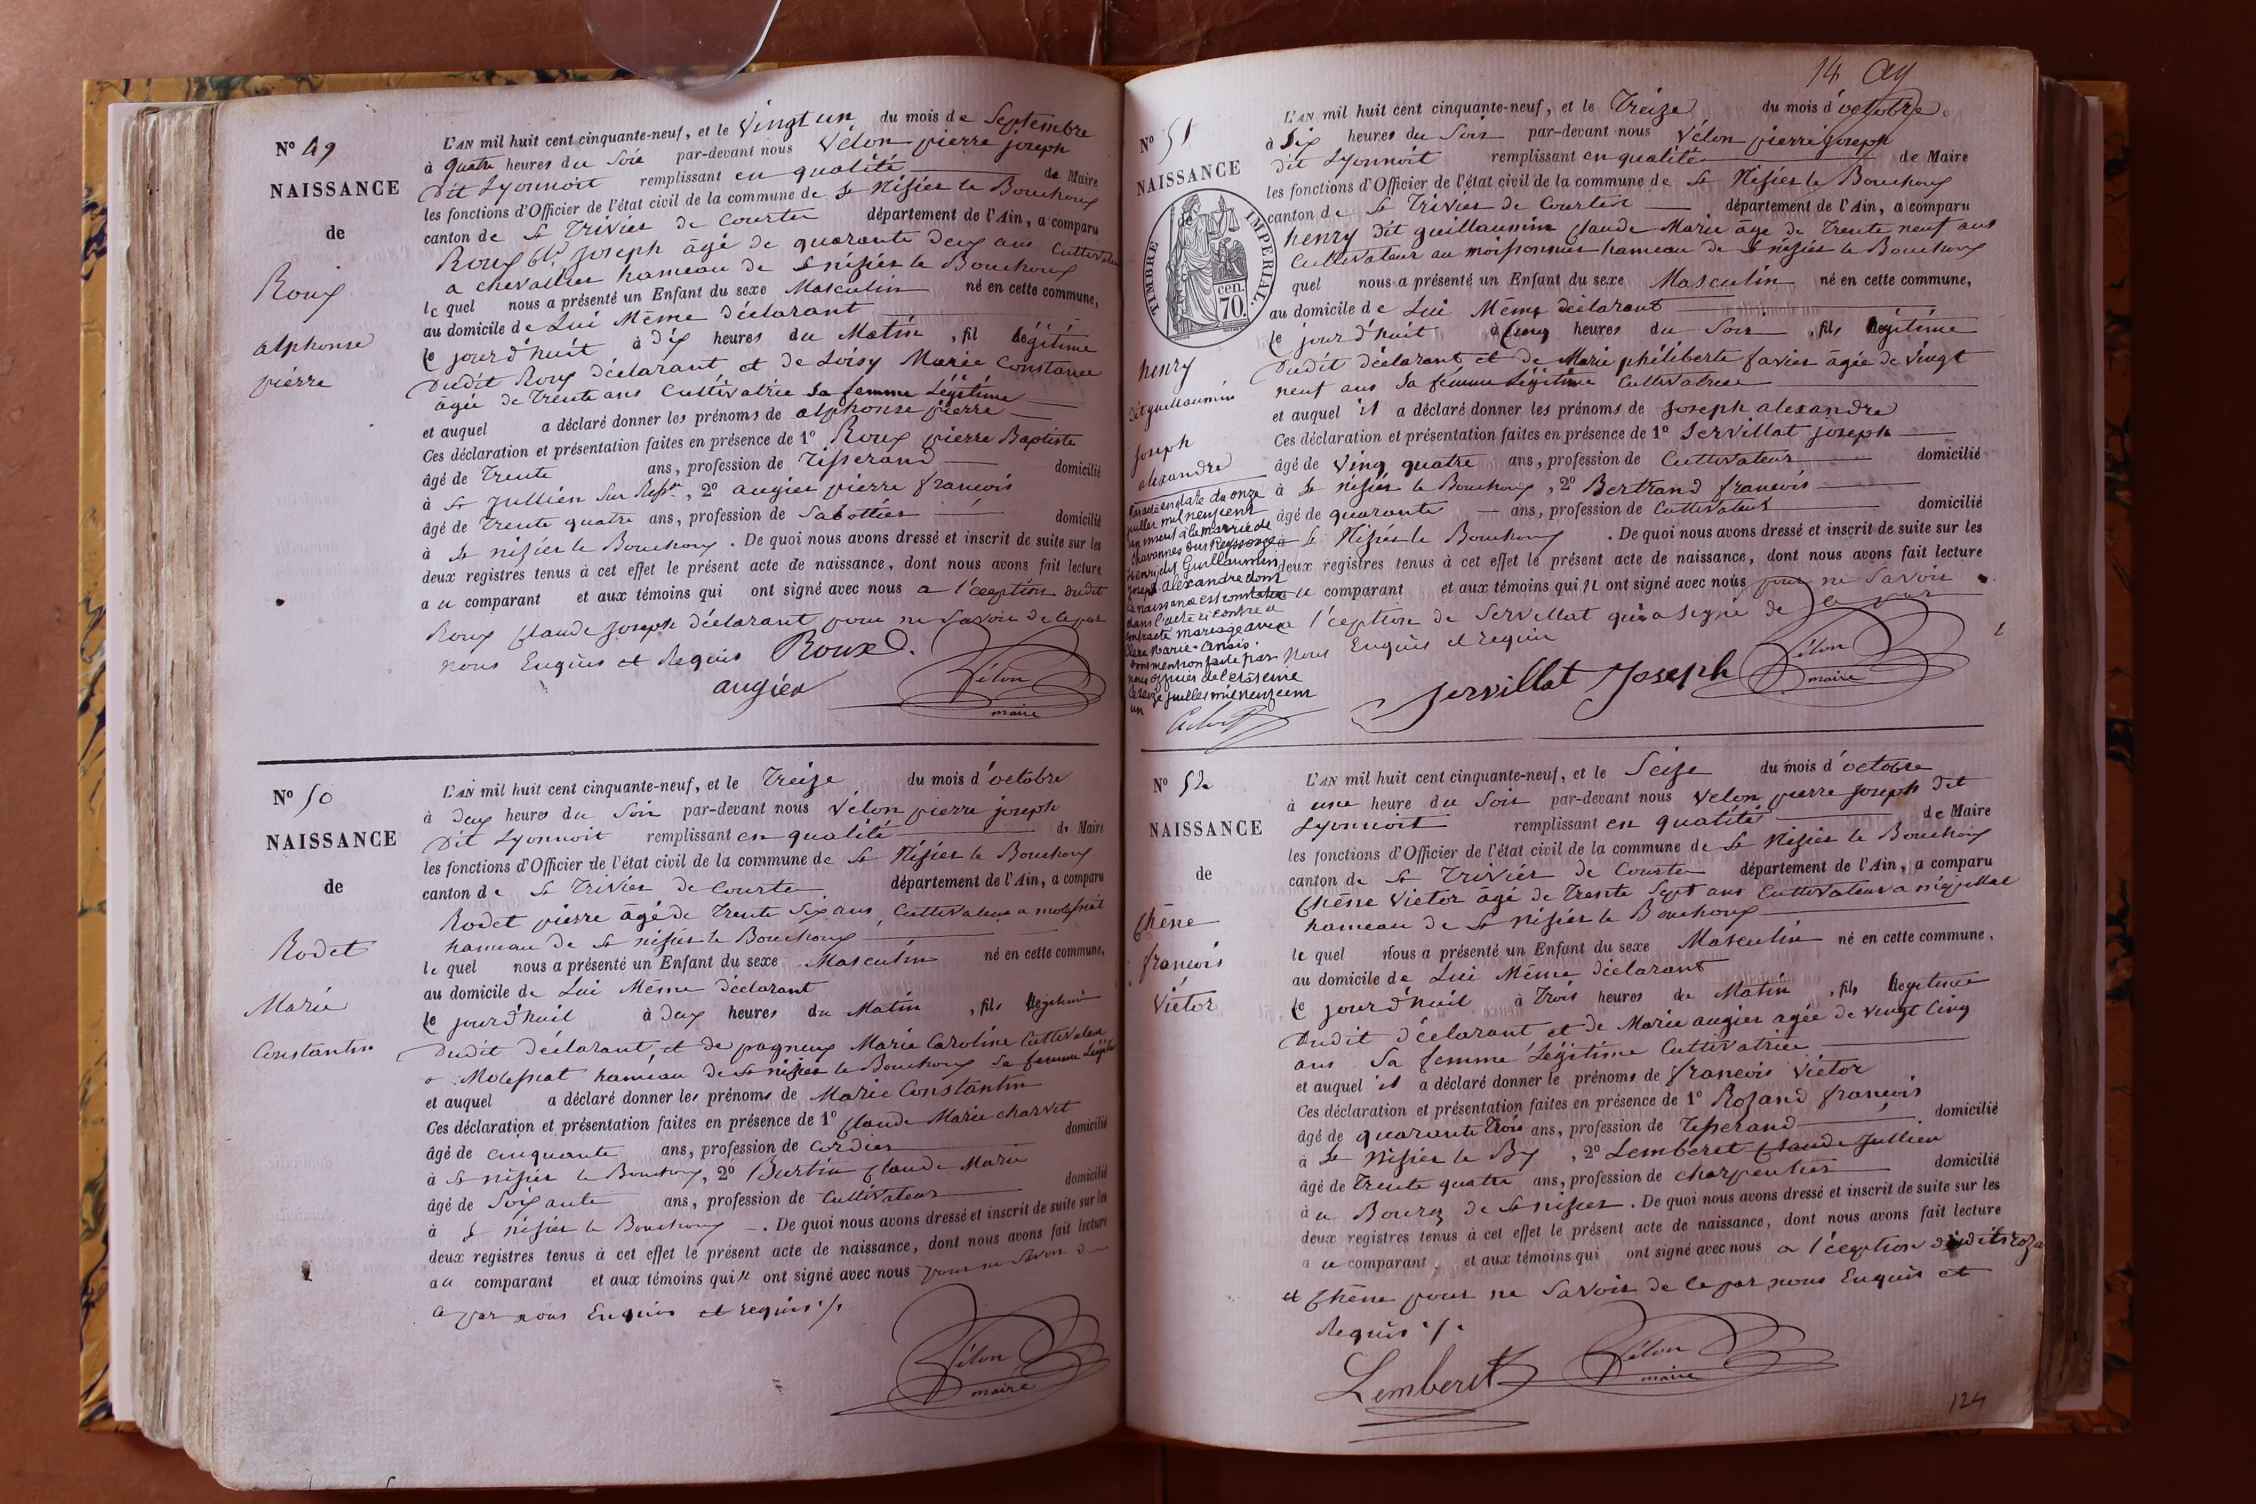 N° 49
NAISSANCE
de
Roux
alphonse
pierre
L'AN mil huit cent cinquante-neuf, et le vingt un du mois de Septembre
à quatre heures du Soir par-devant nous Vélon pierre joseph
dit Lyonnoit remplissant en qualité de Maire
les fonctions d'Officier de l'état civil de la commune de St Nisier le Bouchoux
canton de St Trivier de Courtes département de l'Ain, a comparu
Roux Cde Joseph âgé de quarante deux ans Cultivateur
a chevalier hameau de St nisier le Bouchoux
le quel nous a présenté un Enfant du sexe Masculin né en cette commune,
au domicile de Lui Même déclarant
le jourd'huit à dix heures du Matin, fil légitime
Dudit Roux déclarant et de Loisy Marie Constance
âgée de Trente ans Cultivatrice Sa femme Légitime
et auquel a déclaré donner les prénoms de alphonse pierre
Ces déclaration et présentation faites en présence de 1° Roux pierre Baptiste
âgé de Trente ans, profession de Tisserand domicilié
à St Jullien Sur Ress., 2° augier pierre francois
âgé de Trente quatre ans, profession de Sabottier domicilié
à St nisier le Bouchoux. De quoi nous avons dressé et inscrit de suite sur les
deux registres tenus à cet effet le présent acte de naissance, dont nous avons fait lecture
au comparant et aux témoins qui ont signé avec nous a l'éception dudit
Roux Claude Joseph déclarant pour ne Savoir de ce par
nous Enquis et Requis Roux
augier
Vélon
maire
N° 50
NAISSANCE
de
Rodet
Marie
Constantin
L'AN mil huit cent cinquante-neuf, et le Treize du mois d'octobre
à deux heures du Soir par-devant nous Vélon pierre joseph
dit Lyonnoit remplissant en qualité de Maire
les fonctions d'Officier de l'état civil de la commune de St Nisier le Bouchoux
canton de St Trivier de Courtes département de l'Ain, a comparu
Rodet pierre âgé de Trente Six ans, Cultivateur a molesnat
hameau de St nisier le Bouchoux
le quel nous a présenté un Enfant du sexe Masculin né en cette commune,
au domicile de Lui Même déclarant
le jourd'huit à deux heures du Matin, fils légitime
Dudit déclarant, et de pagneux Marie Caroline Cultivatrice
a Molesnat hameau de St nisier le Bouchoux Sa femme Légitime
et auquel a déclaré donner les prénoms de Marie Constantin
Ces déclaration et présentation faites en présence de 1° Claude Marie charvet
âgé de cinquante ans, profession de cordier domicilié
à St nisier le Bouchoux, 2° Burtin Claude Marie
âgé de Soixante ans, profession de Cultivateur domicilié
à St nisier le Bouchoux. De quoi nous avons dressé et inscrit de suite sur les
deux registres tenus à cet effet le présent acte de naissance, dont nous avons fait lecture
au comparant et aux témoins qui n ont signé avec nous pour ne Savoir de
ce par nous Enquis et requis ./.
Vélon
maire
14
N° 51
NAISSANCE
TIMBRE IMPERIAL
cen.
70.
henry
dit guillaumin
Joseph
alexandre
L'AN mil huit cent cinquante-neuf, et le Treize du mois d'octobre
à Six heures du Soir par-devant nous Vélon pierre Joseph
dit Lyonnoit remplissant en qualité de Maire
les fonctions d'Officier de l'état civil de la commune de St Nisier le Bouchoux
canton de St Trivier de Courtes département de l'Ain, a comparu
henry dit guillaumin Claude Marie âgé de Trente neuf ans
Cultivateur au moissonnier hameau de St nisier le Bouchoux
quel nous a présenté un Enfant du sexe Masculin né en cette commune,
au domicile de Lui Même déclarant
le jourd'huit à Cinq heures du Soir, fils légitime
Dudit déclarant et de Marie philiberte favier âgée de vingt
neuf ans Sa femme Légitime Cultivatrice
et auquel il a déclaré donner les prénoms de Joseph alexandre
Ces déclaration et présentation faites en présence de 1° Servillat Joseph
âgé de Ving quatre ans, profession de Cultivateur domicilié
à St nisier le Bouchoux, 2° Bertrand francois
âgé de quarante ans, profession de Cultivateur domicilié
à St Nisier le Bouchoux. De quoi nous avons dressé et inscrit de suite sur les
deux registres tenus à cet effet le présent acte de naissance, dont nous avons fait lecture
au comparant et aux témoins qui n ont signé avec nous pour ne Savoir
a l'éception de Servillat qui a Signé de ce par
nous Enquis et requis
Servillat Joseph
Vélon
maire
Par acte en date du onze
juillet mil neuf cent
un inscrit à la mairie de
Chavannes sur Reyssouze
Henry dit Guillaumin
Joseph Alexandre dont
la naissance est constatée
dans l'acte ci contre a
contracté mariage avec
Marie-Anaïs.
mention faite par
nous de
le juillet mil neuf cent
un
N° 52
NAISSANCE
de
Chêne
francois
Victor
L'AN mil huit cent cinquante-neuf, et le Seize du mois d'octobre
à une heure du Soir par-devant nous Velon pierre joseph dit
Lyonnoit remplissant en qualité de Maire
les fonctions d'Officier de l'état civil de la commune de St Nisier le Bouchoux
canton de St Trivier de Courtes département de l'Ain, a comparu
Chêne Victor âgé de Trente Sept ans Cultivateur a
hameau de St nisier le Bouchoux
le quel nous a présenté un Enfant du sexe Masculin né en cette commune,
au domicile de Lui Même déclarant
le jourd'huit à Trois heures du Matin, fils légitime
Dudit déclarant et de Marie augier agée de vingt Cinq
ans Sa femme Légitime Cultivatrice
et auquel il a déclaré donner le prénoms de francois Victor
Ces déclaration et présentation faites en présence de 1° Rozand francois
âgé de quarante Trois ans, profession de Tisserand domicilié
à St Nisier le Bx, 2° Lemberet Claude Jullien
âgé de Trente quatre ans, profession de Charpentier domicilié
à u Bourg de St nisier. De quoi nous avons dressé et inscrit de suite sur les
deux registres tenus à cet effet le présent acte de naissance, dont nous avons fait lecture
au comparant et aux témoins qui ont signé avec nous a l'éception dudits
et Chêne pour ne Savoir de ce par nous Enquis et
Requis ./.
Lemberet
Vélon
maire
124